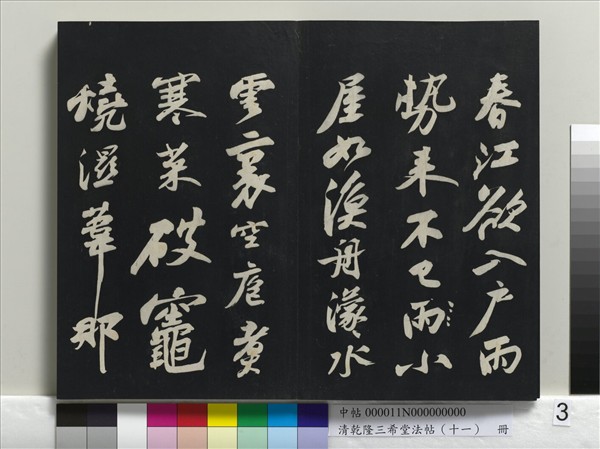 春江欲入戶雨
勢来不已雨小
屋如漁舟濛々水
雲裏空庖煮
寒菜破竈
燒濕葦那
中帖 000011N000000000
清乾隆三希堂法帖（十一） 冊
3